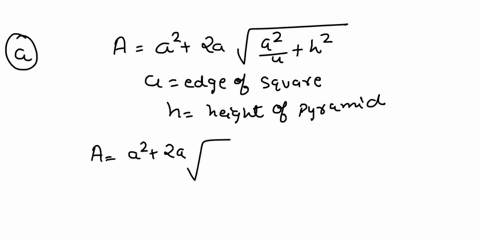 (a) A = a² + 2a √(a²/4 + h²)
a = edge of square
h = height of pyramid
A = a² + 2a √